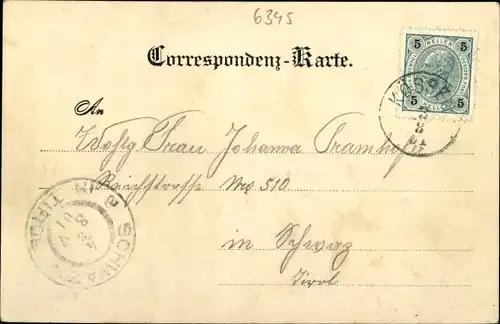 6345
Correspondenz-Karte.
5 5
HELLER
5 5
KÖSSEN
An
Wohlg. Frau Johanna Tramhof
Reichstrasse No. 510
in Schwaz
Tirol
SCHWAZ TIROL